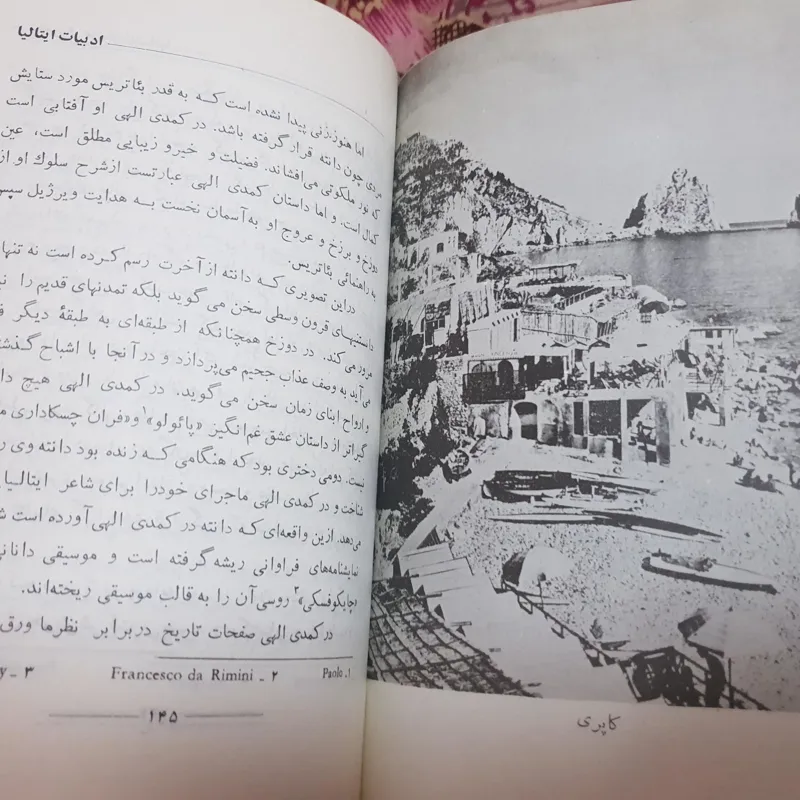 ادبیات ایتالیا
اما هنوز زنی پیدا نشده است که به قدر بئاتریس مورد ستایش
مردی چون دانته قرار گرفته باشد. در کمدی الهی او آفتابی است
که نور ملکوتی می‌افشاند. فضیلت و خیر و زیبایی مطلق است، عین
کمال است. و اما داستان کمدی الهی عبارتست از شرح سلوك او از
دوزخ و برزخ و عروج او به آسمان نخست به هدایت ویرژیل سپس
به راهنمائی بئاتریس.
دراین تصویری که دانته از آخرت رسم کرده است نه تنها
داستنیهای قرون وسطی سخن می گوید بلکه تمدنهای قدیم را نیز
مرور می کند. در دوزخ همچنانکه از طبقه‌ای به طبقهٔ دیگر
می‌آید به وصف عذاب جحیم می‌پردازد و در آنجا با اشباح گذشته
و ارواح ابنای زمان سخن می گوید. در کمدی الهی هیچ
گیراتر از داستان عشق غم‌انگیز «پائولو»۱ و «فران چسکاداری
نیست. دومی دختری بود که هنگامی که زنده بود دانته وی
شناخت و در کمدی الهی ماجرای خودرا برای شاعر ایتالیا
می‌دهد. ازین واقعه‌ای که دانته در کمدی الهی آورده است
نمایشنامه‌های فراوانی ریشه گرفته است و موسیقی
«چایکوفسکی»۳ روسی آن را به قالب موسیقی ریخته‌اند.
در کمدی الهی صفحات تاریخ در برابر نظر ما ورق
۱ - Paolo ۲ - Francesco da Rimini ۳ - y
۱۴۵
کاپری